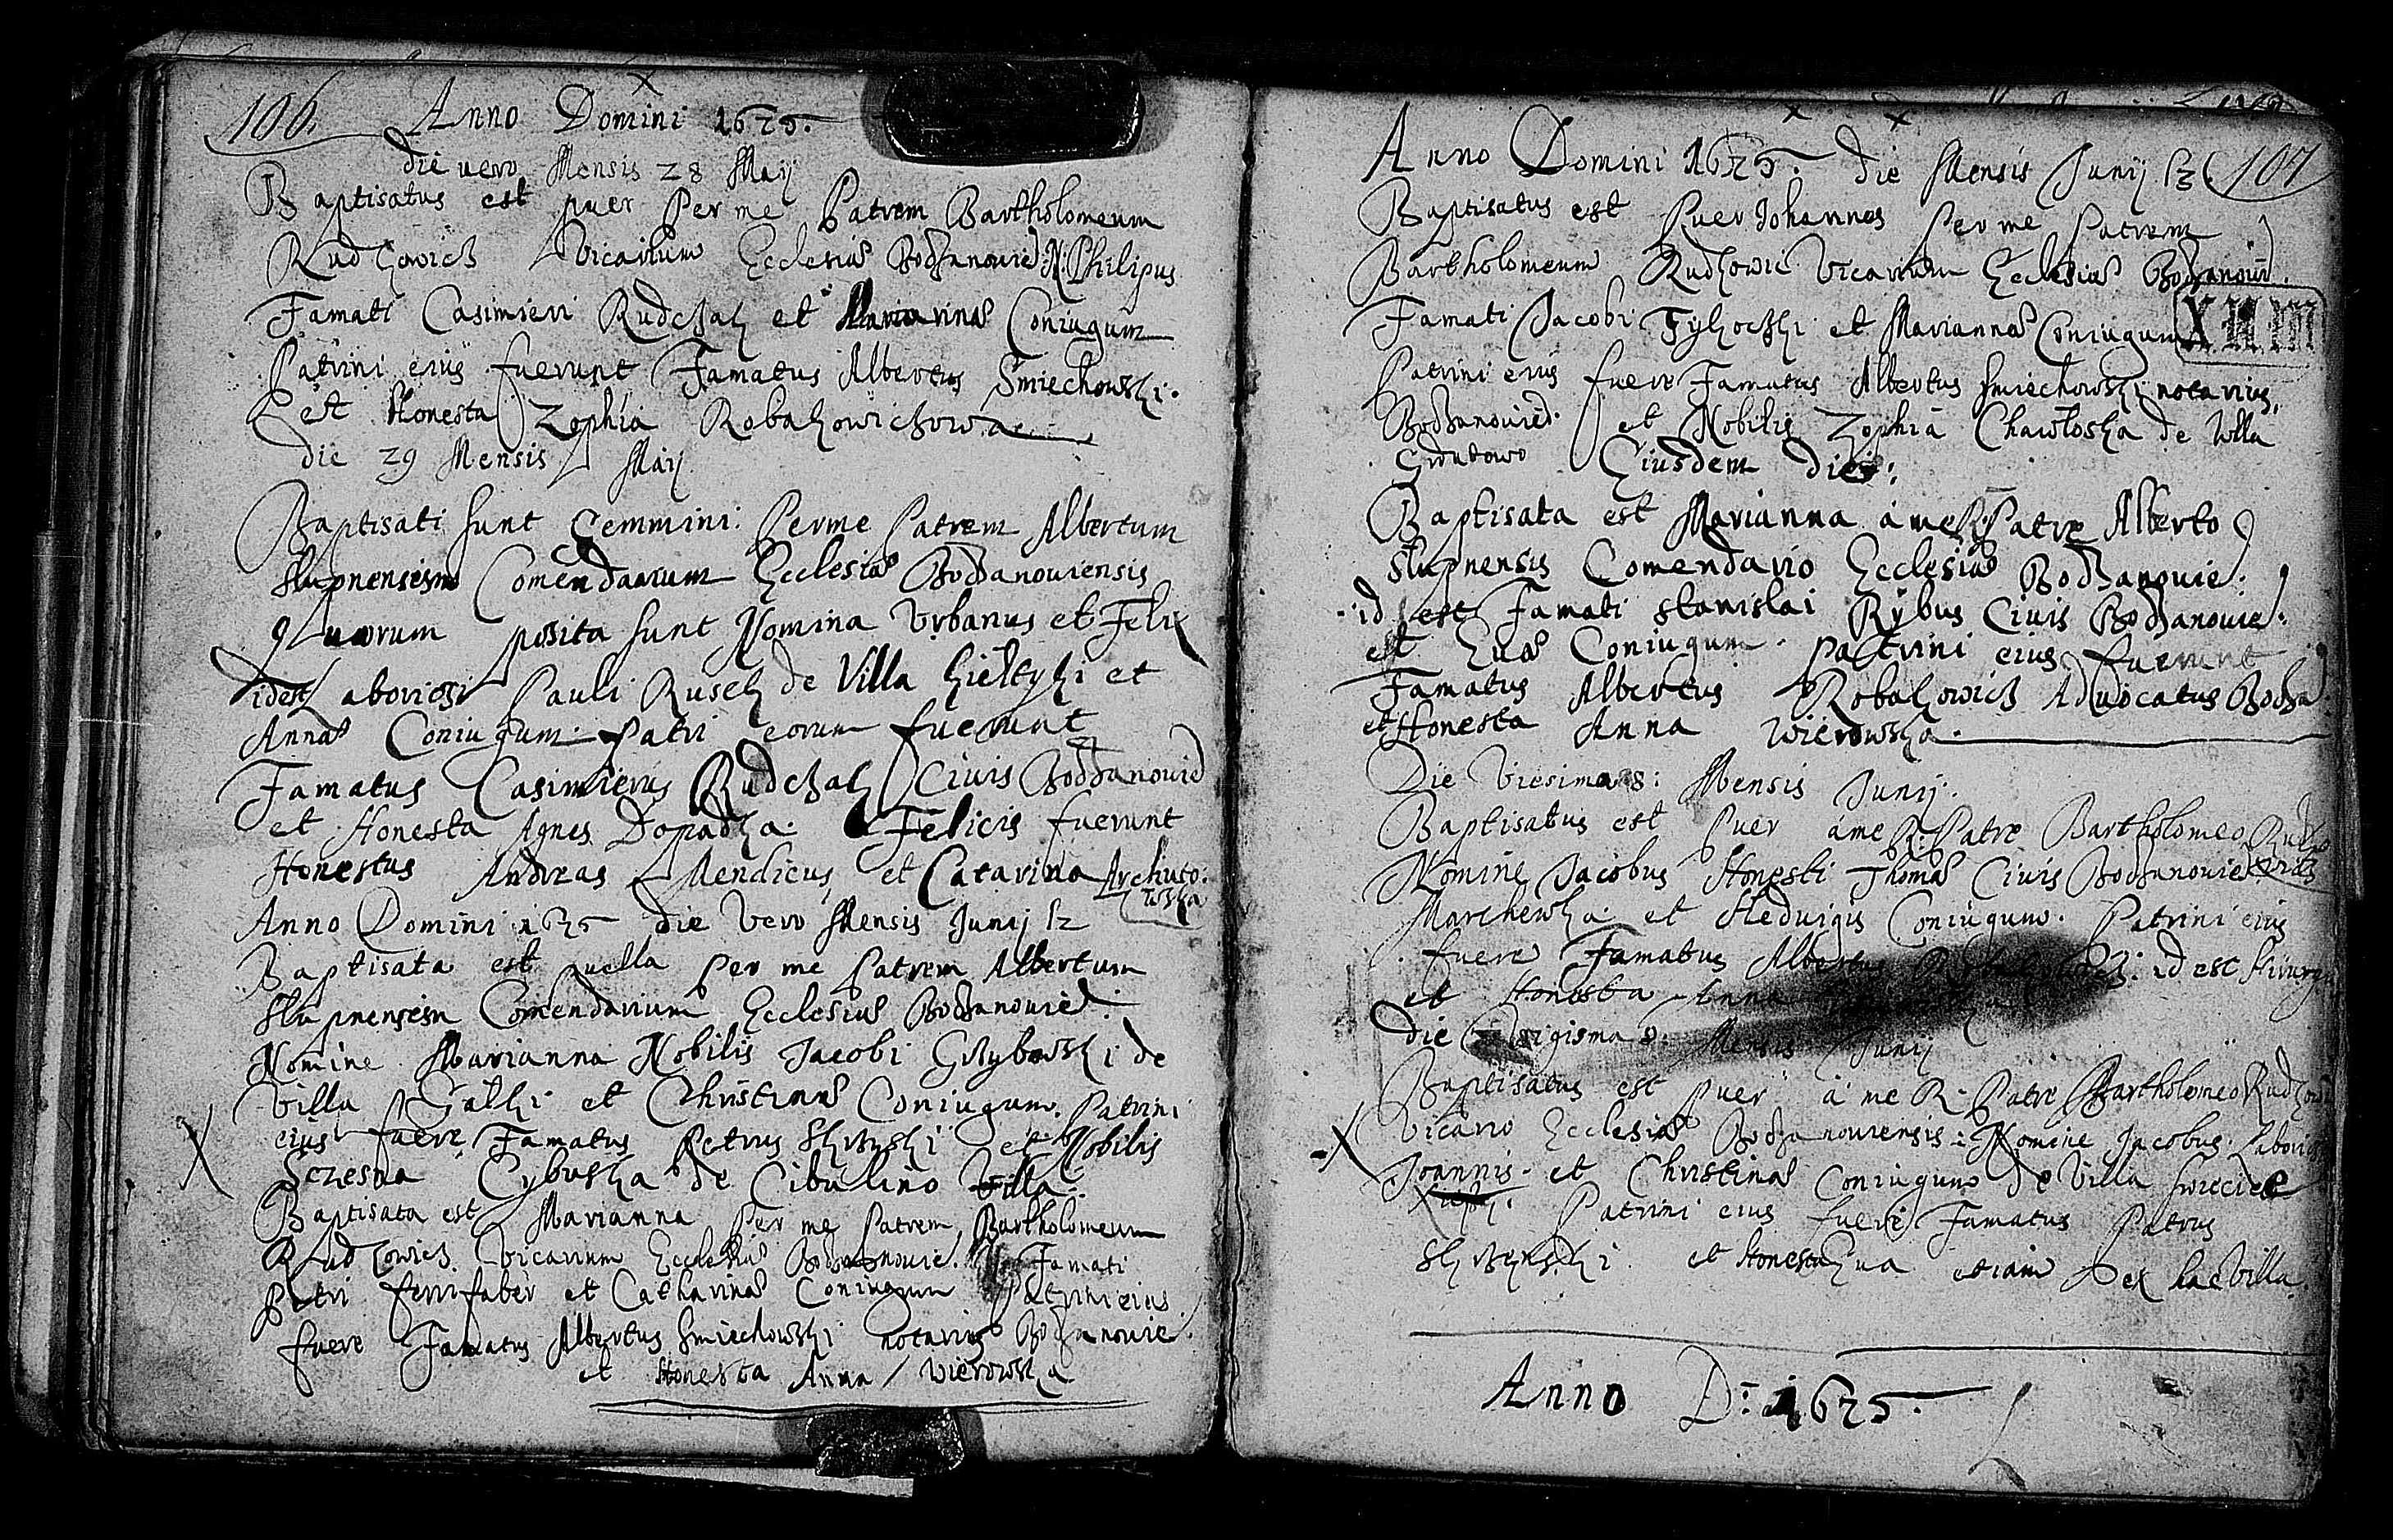 106.
Anno Domini 1675.
die vero Mensis 28 Maij
Baptisatus est puer Per me Patrem Bartholomeum
Rudkowicz Vicarium Ecclesiæ Bodzanovie: N: Philipus
Famati Casimieri Rudczak et Mariannæ Coniugum
Patrini eius fuerunt Famatus Albertus Smiechowski.
et Honesta Zophia Robakowiczowa
die 29 Mensis Maij
Baptisati sunt Gemmini: Per me Patrem Albertum
Slupnensem Comendarium Ecclesiæ Bodzanoviensis
quorum posita sunt Nomina Urbanus et Felix
idest laboriosi Pauli Rusek de Villa Kieltyki et
Annæ Coniugum. Patri eorum fuerunt
Famatus Casimierus Rudczak Civis Bodzanovie
et Honesta Agnes Dopadka. Felicis fuerunt
Honestus Andreas Mendicus et Catarina Archuto:
wska
Anno Domini 1675 die Vero Mensis Junij 12
Baptisata est puella per me Patrem Albertum
Slupnensem Comendarium Ecclesiæ Bodzanovie.
Nomine Marianna Nobilis Jacobi Grzybowski de
Villa Galki et Christinæ Coniugum. Patrini
eius fuere Famatus Petrus et Nobilis
Sczesna Cybuska de Cibulino Villa.
Baptisata est Marianna Per me Patrem Bartholomeum
Rudkowicz Vicarium Ecclesiæ Bodzanovie. Famati
Petri ferrifaber et Catharinæ Coniugum Patrini eius
fuere Famatus Albertus Smiechowski notarius Bodzanovie.
et Honesta Anna Wierowska
Anno Domini 1675. die Mensis Junij 12
107
Baptisatus est Puer Johannes Per me Patrem
Bartholomeum Rudkowic Vicarium Ecclesiæ Bodzanovie.
Famati Jacobi Tykocki et Mariannæ Coniugum
Patrini eius fuere Famatus Albertus Smiechowski notarius,
Bodzanovie. et Nobilis Zophia Chawloska de Villa
Eiusdem diei:
Baptisata est Marianna a me R: Patre Alberto
Slupnensis Comendario Ecclesiæ Bodzanovie.
id est Famati Stanislai Rybus Civis Bodzanovie.
et Evæ Coniugum. Patrini eius fuerunt
Famatus Albertus Robakowicz Advocatus Bodza
et Honesta Anna Wierowska.
Die Vicsima 8: Mensis Junij.
Baptisatus est Puer a me R: Patre Bartholomeo Rudko
wicz
Nomine Jacobus Honesti Thomæ Civis Bodzanovie
Marchewka et Hedvigis Coniugum. Patrini eius
fuere Famatus Albertus id est
et Honesta Anna
die Mensis Junij
Baptisatus est Puer a me R. Patre Bartholomeo Rudkowi
Vicario Ecclesiæ Bodzanoviensis Nomine Jacobus. Laborio
Joannis et Christinæ Coniugum de Villa
Patrini eius fuere Famatus Petrus
et Honesta Eva etiam ex hac Villa.
Anno D: 1675.